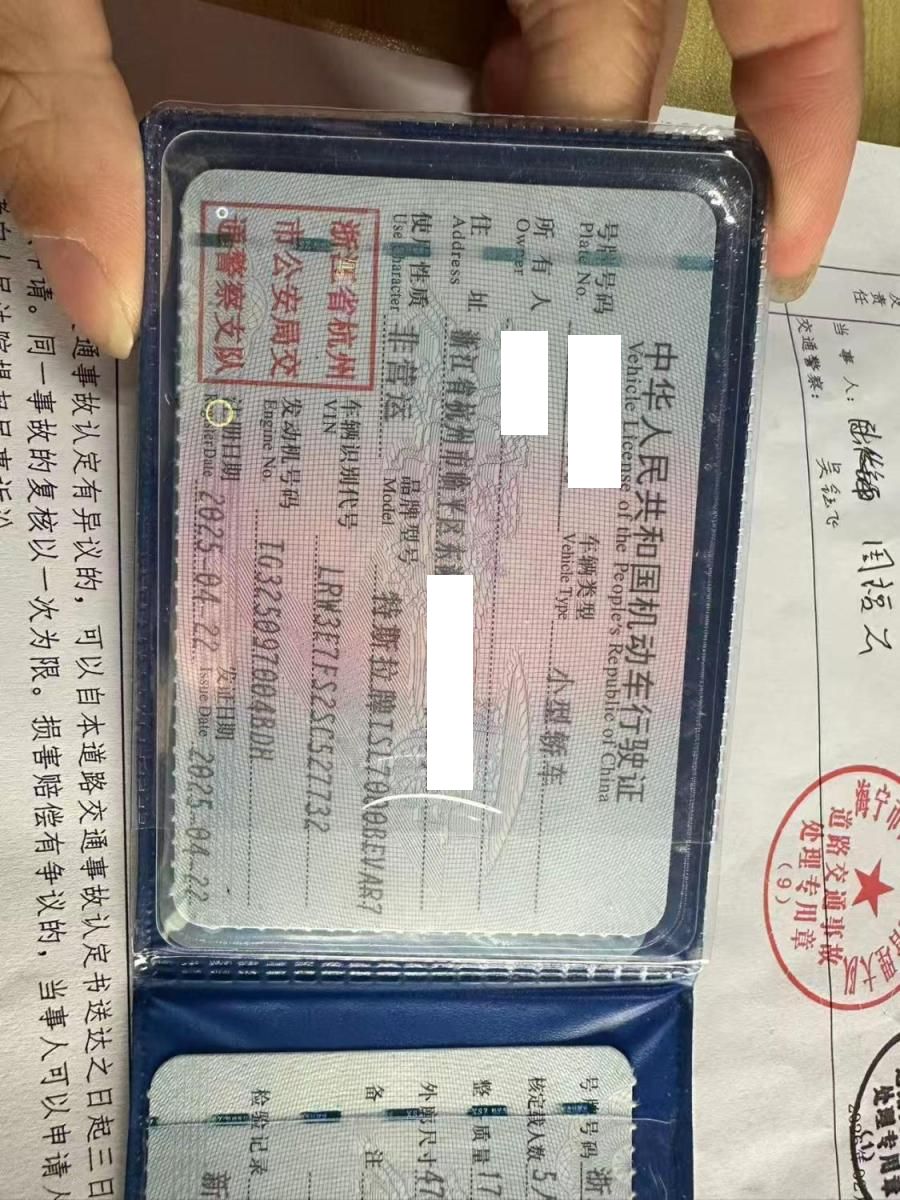 中华人民共和国机动车行驶证
Vehicle License of the People's Republic of China
号牌号码
Plate No.
车辆类型 小型轿车
Vehicle Type
所有人
Owner
住址 浙江省杭州市临平区东
Address
使用性质 非营运
Use Character
品牌型号 特斯拉牌TSL7000BEVAR7
Model
浙江省杭州
市公安局交
通警察支队
车辆识别代号 LRW3E7FS2SC527732
VIN
发动机号码 TG325097004BDH
Engine No.
注册日期 2025-04-22
发证日期 2025-04-22
Issue Date
号牌号码 浙
核定载人数 5人
整备质量 17
外廓尺寸 47
备注
检验记录
及责任
当事人：
交通警察：
道路交通事故
处理专用章
（9）
理大队
处理专用章
（1）
通事故认定有异议的，可以自本道路交通事故认定书送达之日起三日
申请。同一事故的复核以一次为限。损害赔偿有争议的，当事人可以申请人